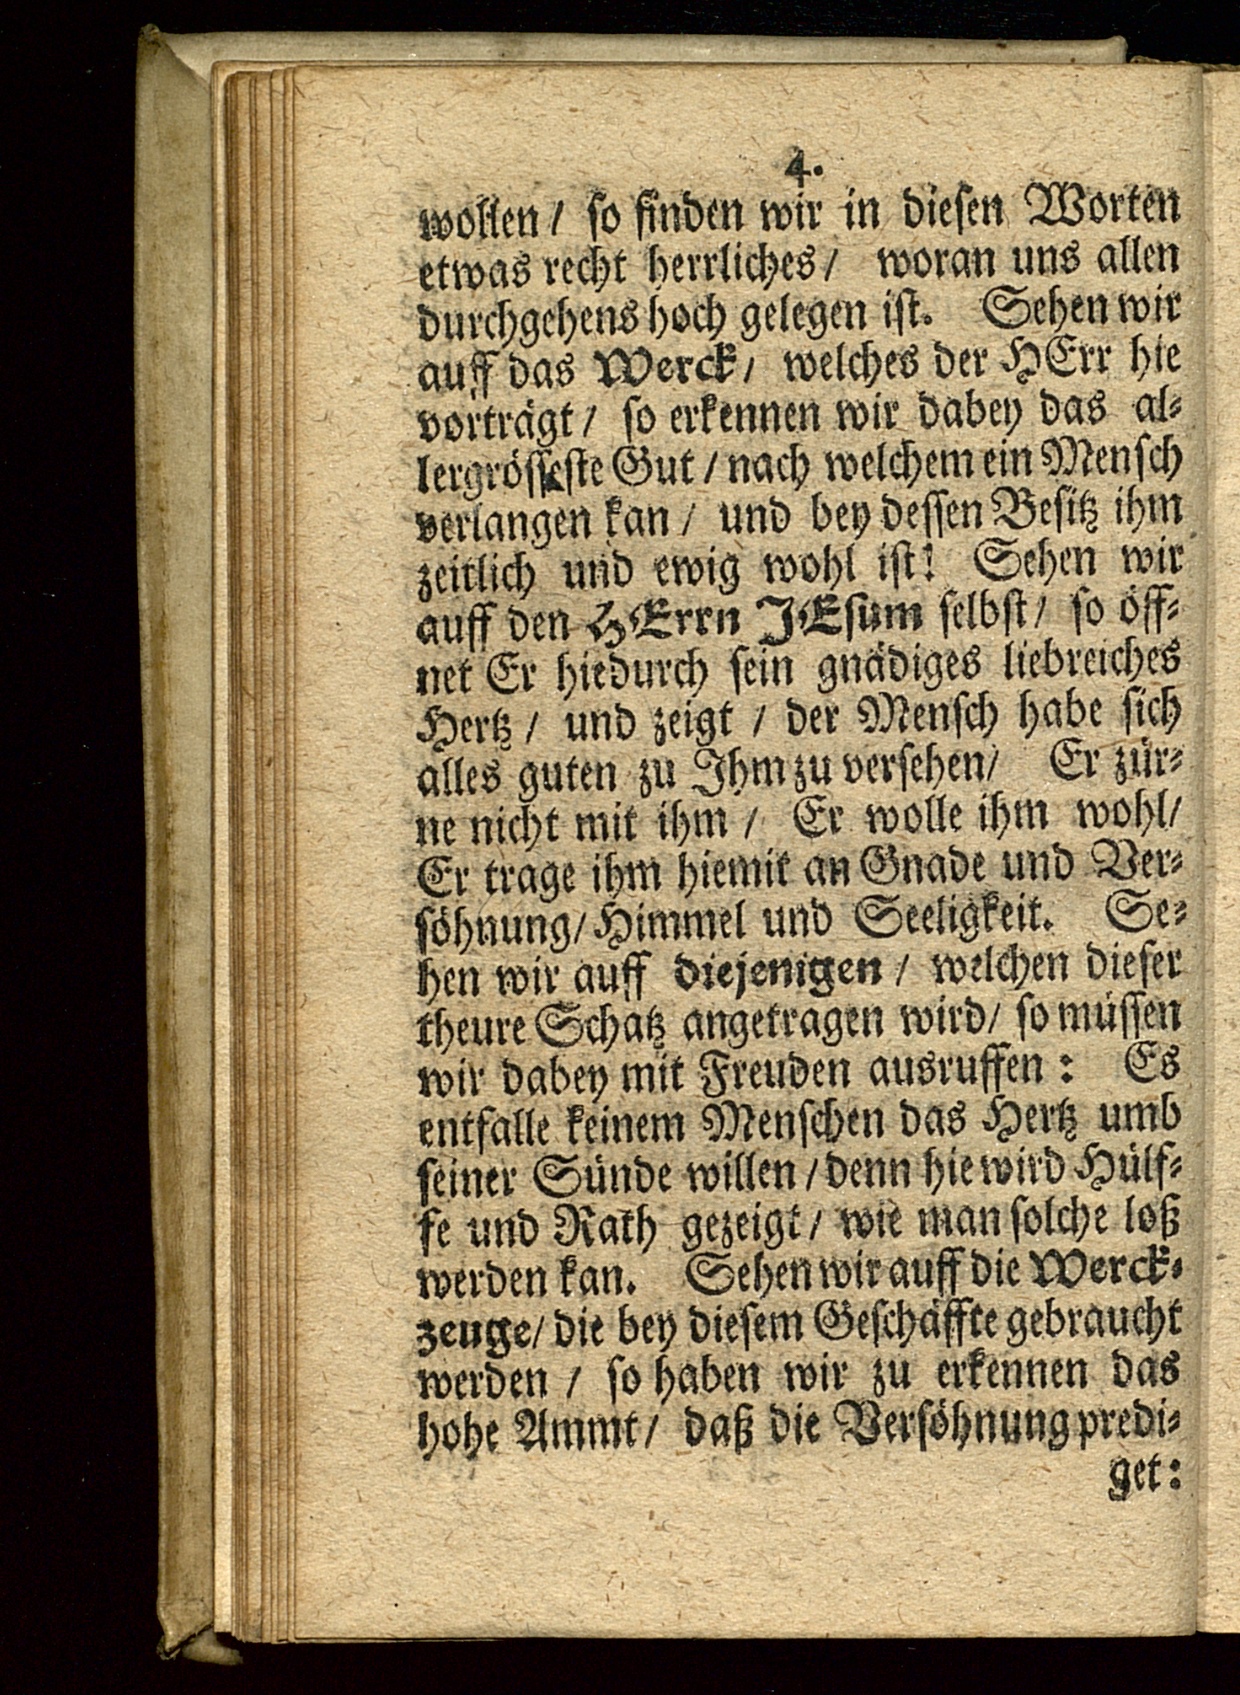 4.
wollen / ſo finden wir in dieſen Worten
etwas recht herrliches / woran uns allen
durchgehens hoch gelegen iſt. Sehen wir
auff das Werck / welches der HErr hie
vorträgt / ſo erkennen wir dabey das al⸗
lergröſſeſte Gut / nach welchem ein Menſch
verlangen kan / und bey deſſen Beſitz ihm
zeitlich und ewig wohl iſt! Sehen wir
auff den HErrn JEſum ſelbſt / ſo öff⸗
net Er hiedurch ſein gnädiges liebreiches
Hertz / und zeigt / der Menſch habe ſich
alles guten zu Ihm zu verſehen / Er zür⸗
ne nicht mit ihm / Er wolle ihm wohl /
Er trage ihm hiemit an Gnade und Ver⸗
ſöhnung / Himmel und Seeligkeit. Se⸗
hen wir auff diejenigen / welchen dieſer
theure Schatz angetragen wird / ſo müſſen
wir dabey mit Freuden ausruffen : Es
entfalle keinem Menſchen das Hertz umb
ſeiner Sünde willen / denn hie wird Hülf⸗
fe und Rath gezeigt / wie man ſolche loß
werden kan. Sehen wir auff die Werck⸗
zeuge / die bey dieſem Geſchäffte gebraucht
werden / ſo haben wir zu erkennen das
hohe Ammt / daß die Verſöhnung predi⸗
get :